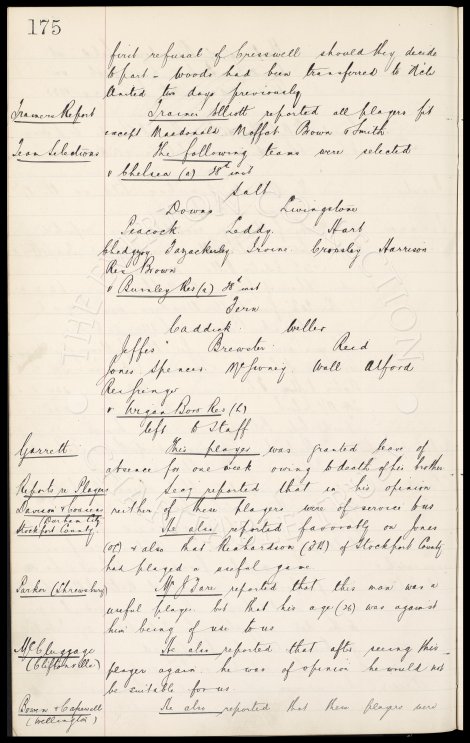 175
first refusal of Cresswell should they decide
to part - Woods had been transferred to
United two days previously
Trainers Report
Trainer Elliott reported all players fit
except Macdonald Moffat Bown & Smith
Team Selections
The following teams were selected
v Chelsea (a) 28th inst
Salt
Downs Livingstone
Peacock Leddy Hart
Chedgzoy Fazackerley Irvine Crossley Harrison
Res Brown
v Burnley Res (a) 28th inst
Fern
Caddick Weller
Jeffes Brewster Reid
Jones Spencer Wall Alford
Res
v Wigan Boro Res (h)
left to Staff
Garrett
This player was granted leave of
absence for one week owing to death of his brother
Reports re Players
Secy reported that in his opinion
Davison & Cousins
neither of these players were of service to us
(Durham City
Stockport County
He also reported favorably on Jones
& also that Richardson of Stockport County
had played a useful game.
Parker (Shrewsbury)
Mr J Fare reported that this man was a
useful player but that his age (26) was against
him being of use to us
McCluggage
(Cliftonville)
He also reported that after seeing this
player again he was of opinion he would not
be suitable for us.
Bowen & Capewell
(Wellington)
He also reported that these players were
THE EVERTON COLLECTION